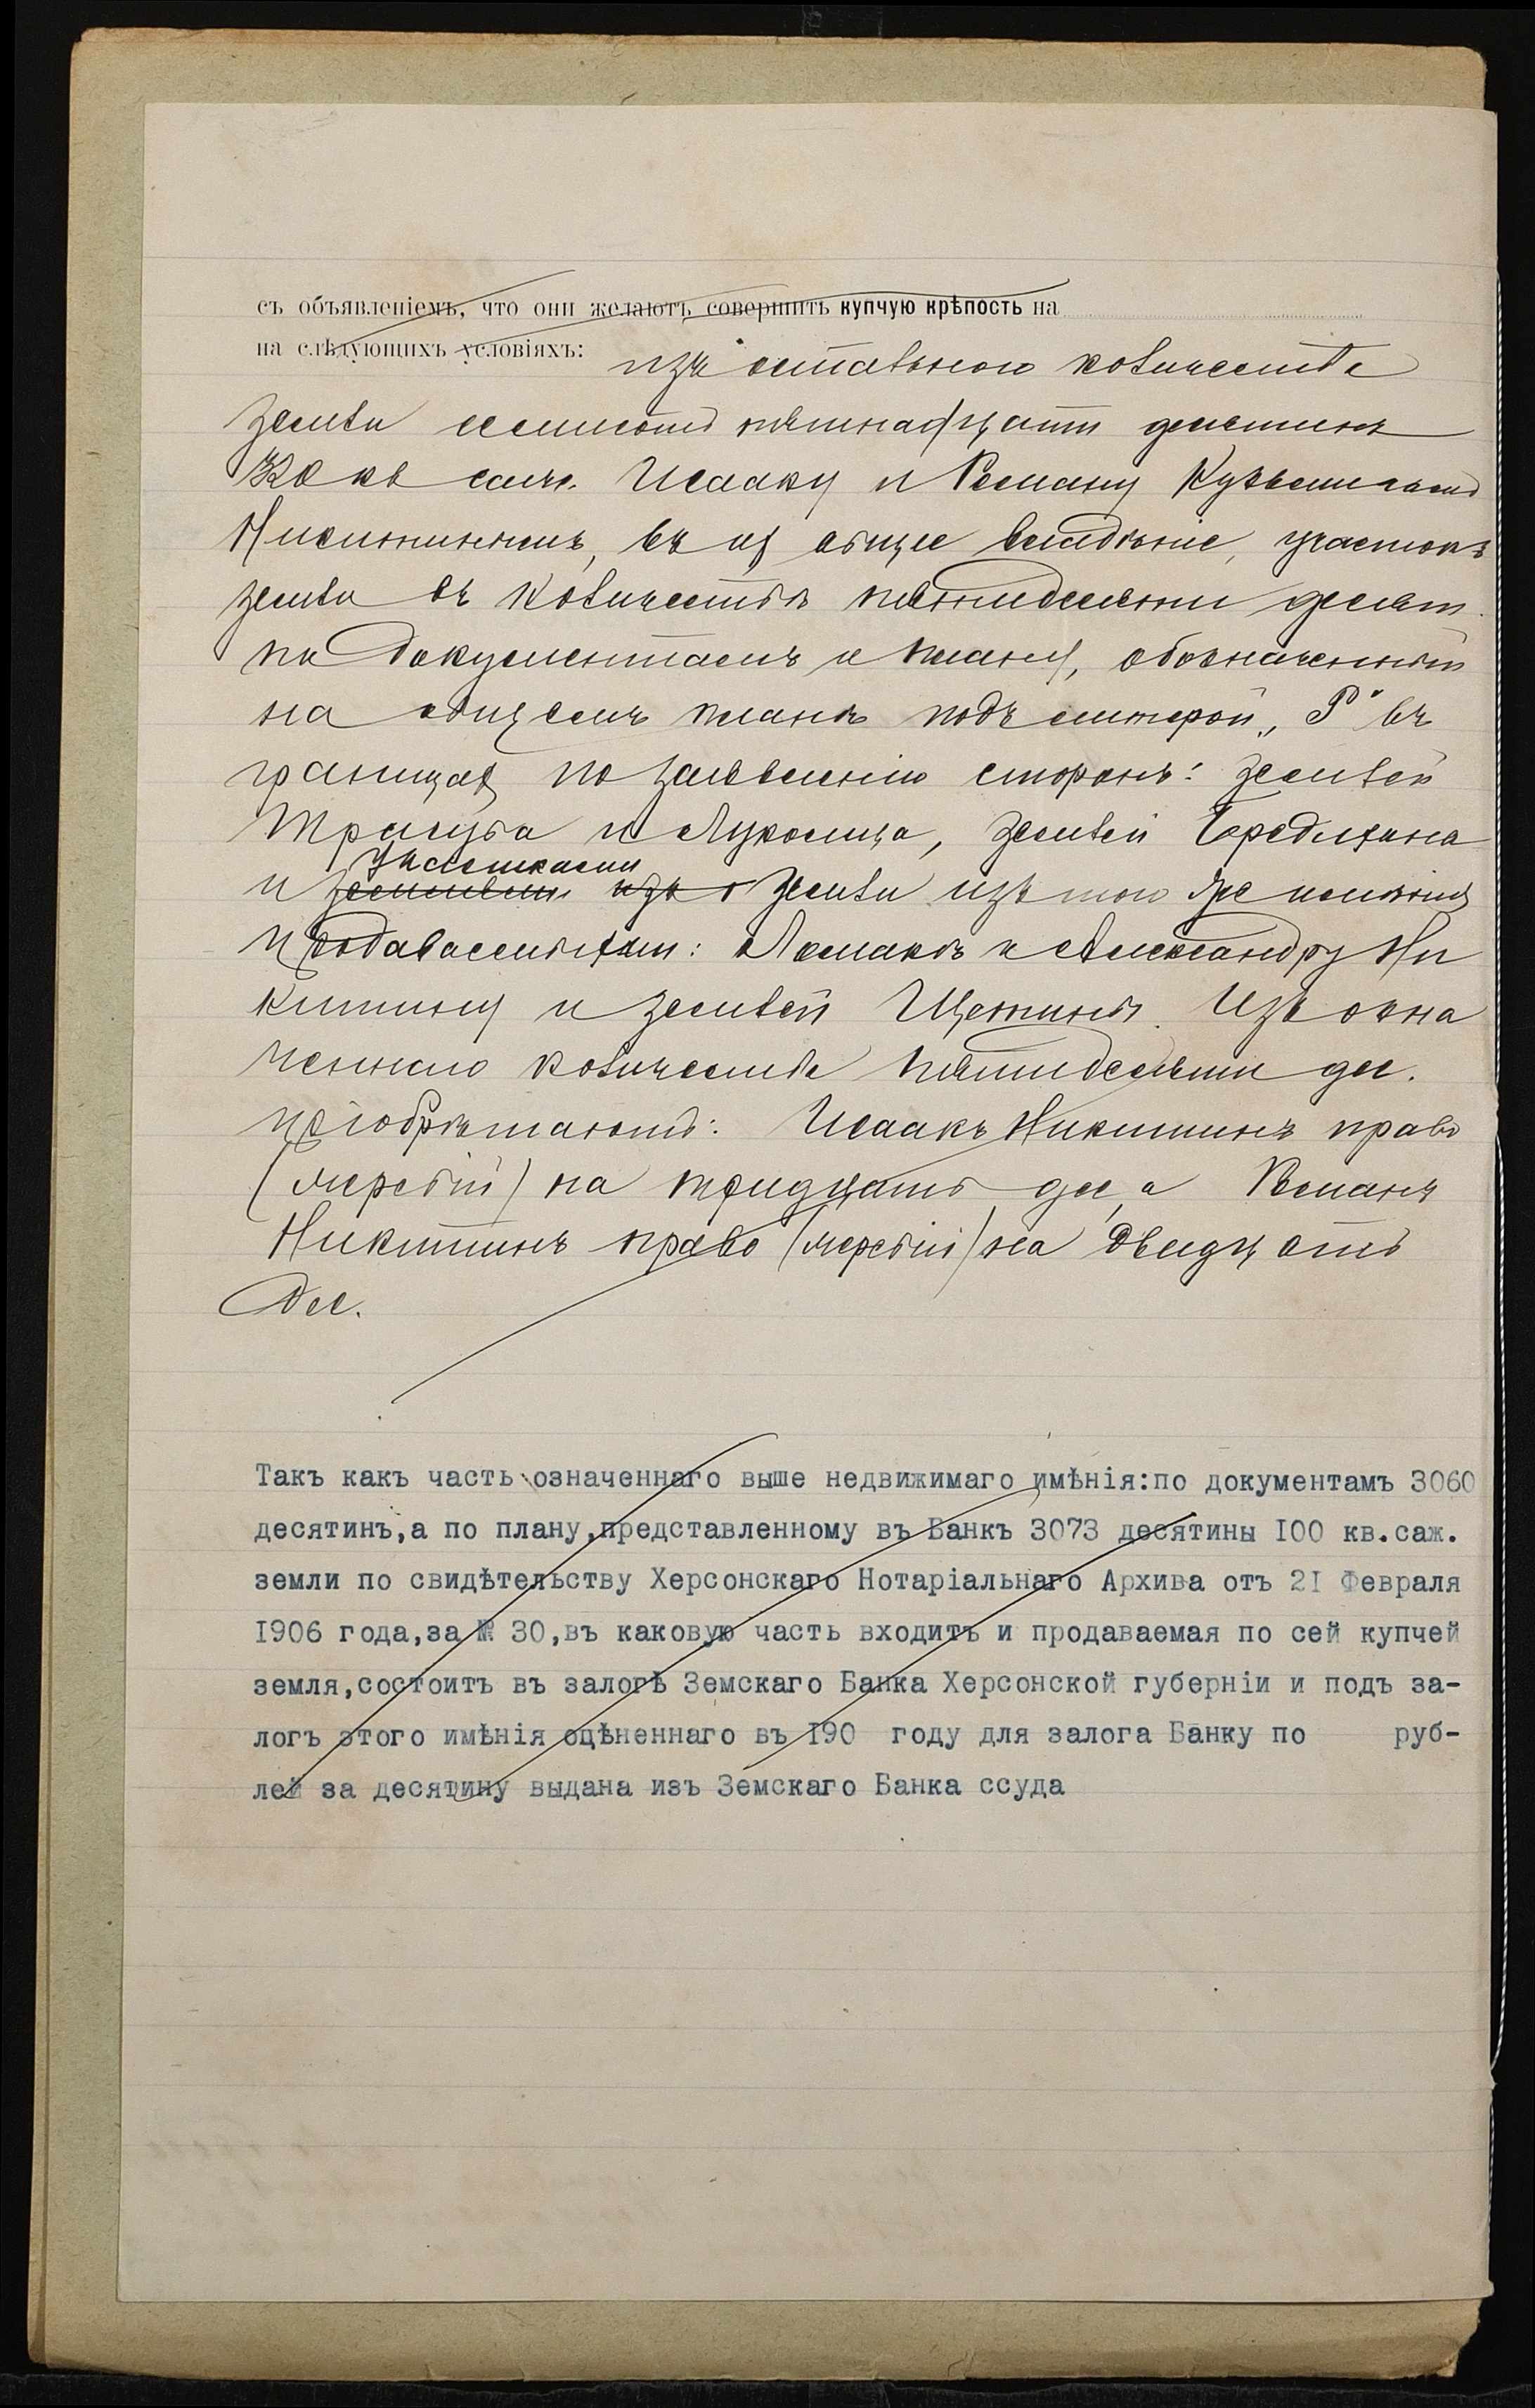 съ объявленіемъ, что они желаютъ совершить купчую крѣпость на
на слѣдующихъ условіяхъ: изъ остального количества
земли семисотъ пятнадцати десятинъ
кв саж. Исааку и Роману Кузьмичамъ
Никитинымъ, въ их общее владѣніе, участокъ
земли въ количествѣ пятидесяти десят.
по документамъ и плану, обозначенный
на общемъ планѣ подъ литерой „Р" въ
границах по заявленію сторонъ: землей
и земли изъ того же имѣнія
участками
продаваемыми: и Александру Ни
китину и землей Щетины. Изъ озна
ченнаго количества пятидесяти дес.
пріобрѣтаютъ: Исаакъ Никитинъ право
(жребій) на тридцать дес, а Романъ
Никитинъ право (жребій) на двадцать
дес.
Такъ какъ часть означеннаго выше недвижимаго имѣнія:по документамъ 3060
десятинъ,а по плану,представленному въ Банкъ 3073 десятины I00 кв.саж.
земли по свидѣтельству Херсонскаго Нотаріальнаго Архива отъ 2I Февраля
I906 года,за № 30,въ каковую часть входитъ и продаваемая по сей купчей
земля,состоитъ въ залогѣ Земскаго Банка Херсонской губерніи и подъ за-
логъ этого имѣнія оцѣненнаго въ I90 году для залога Банку по руб-
лей за десятину выдана изъ Земскаго Банка ссуда